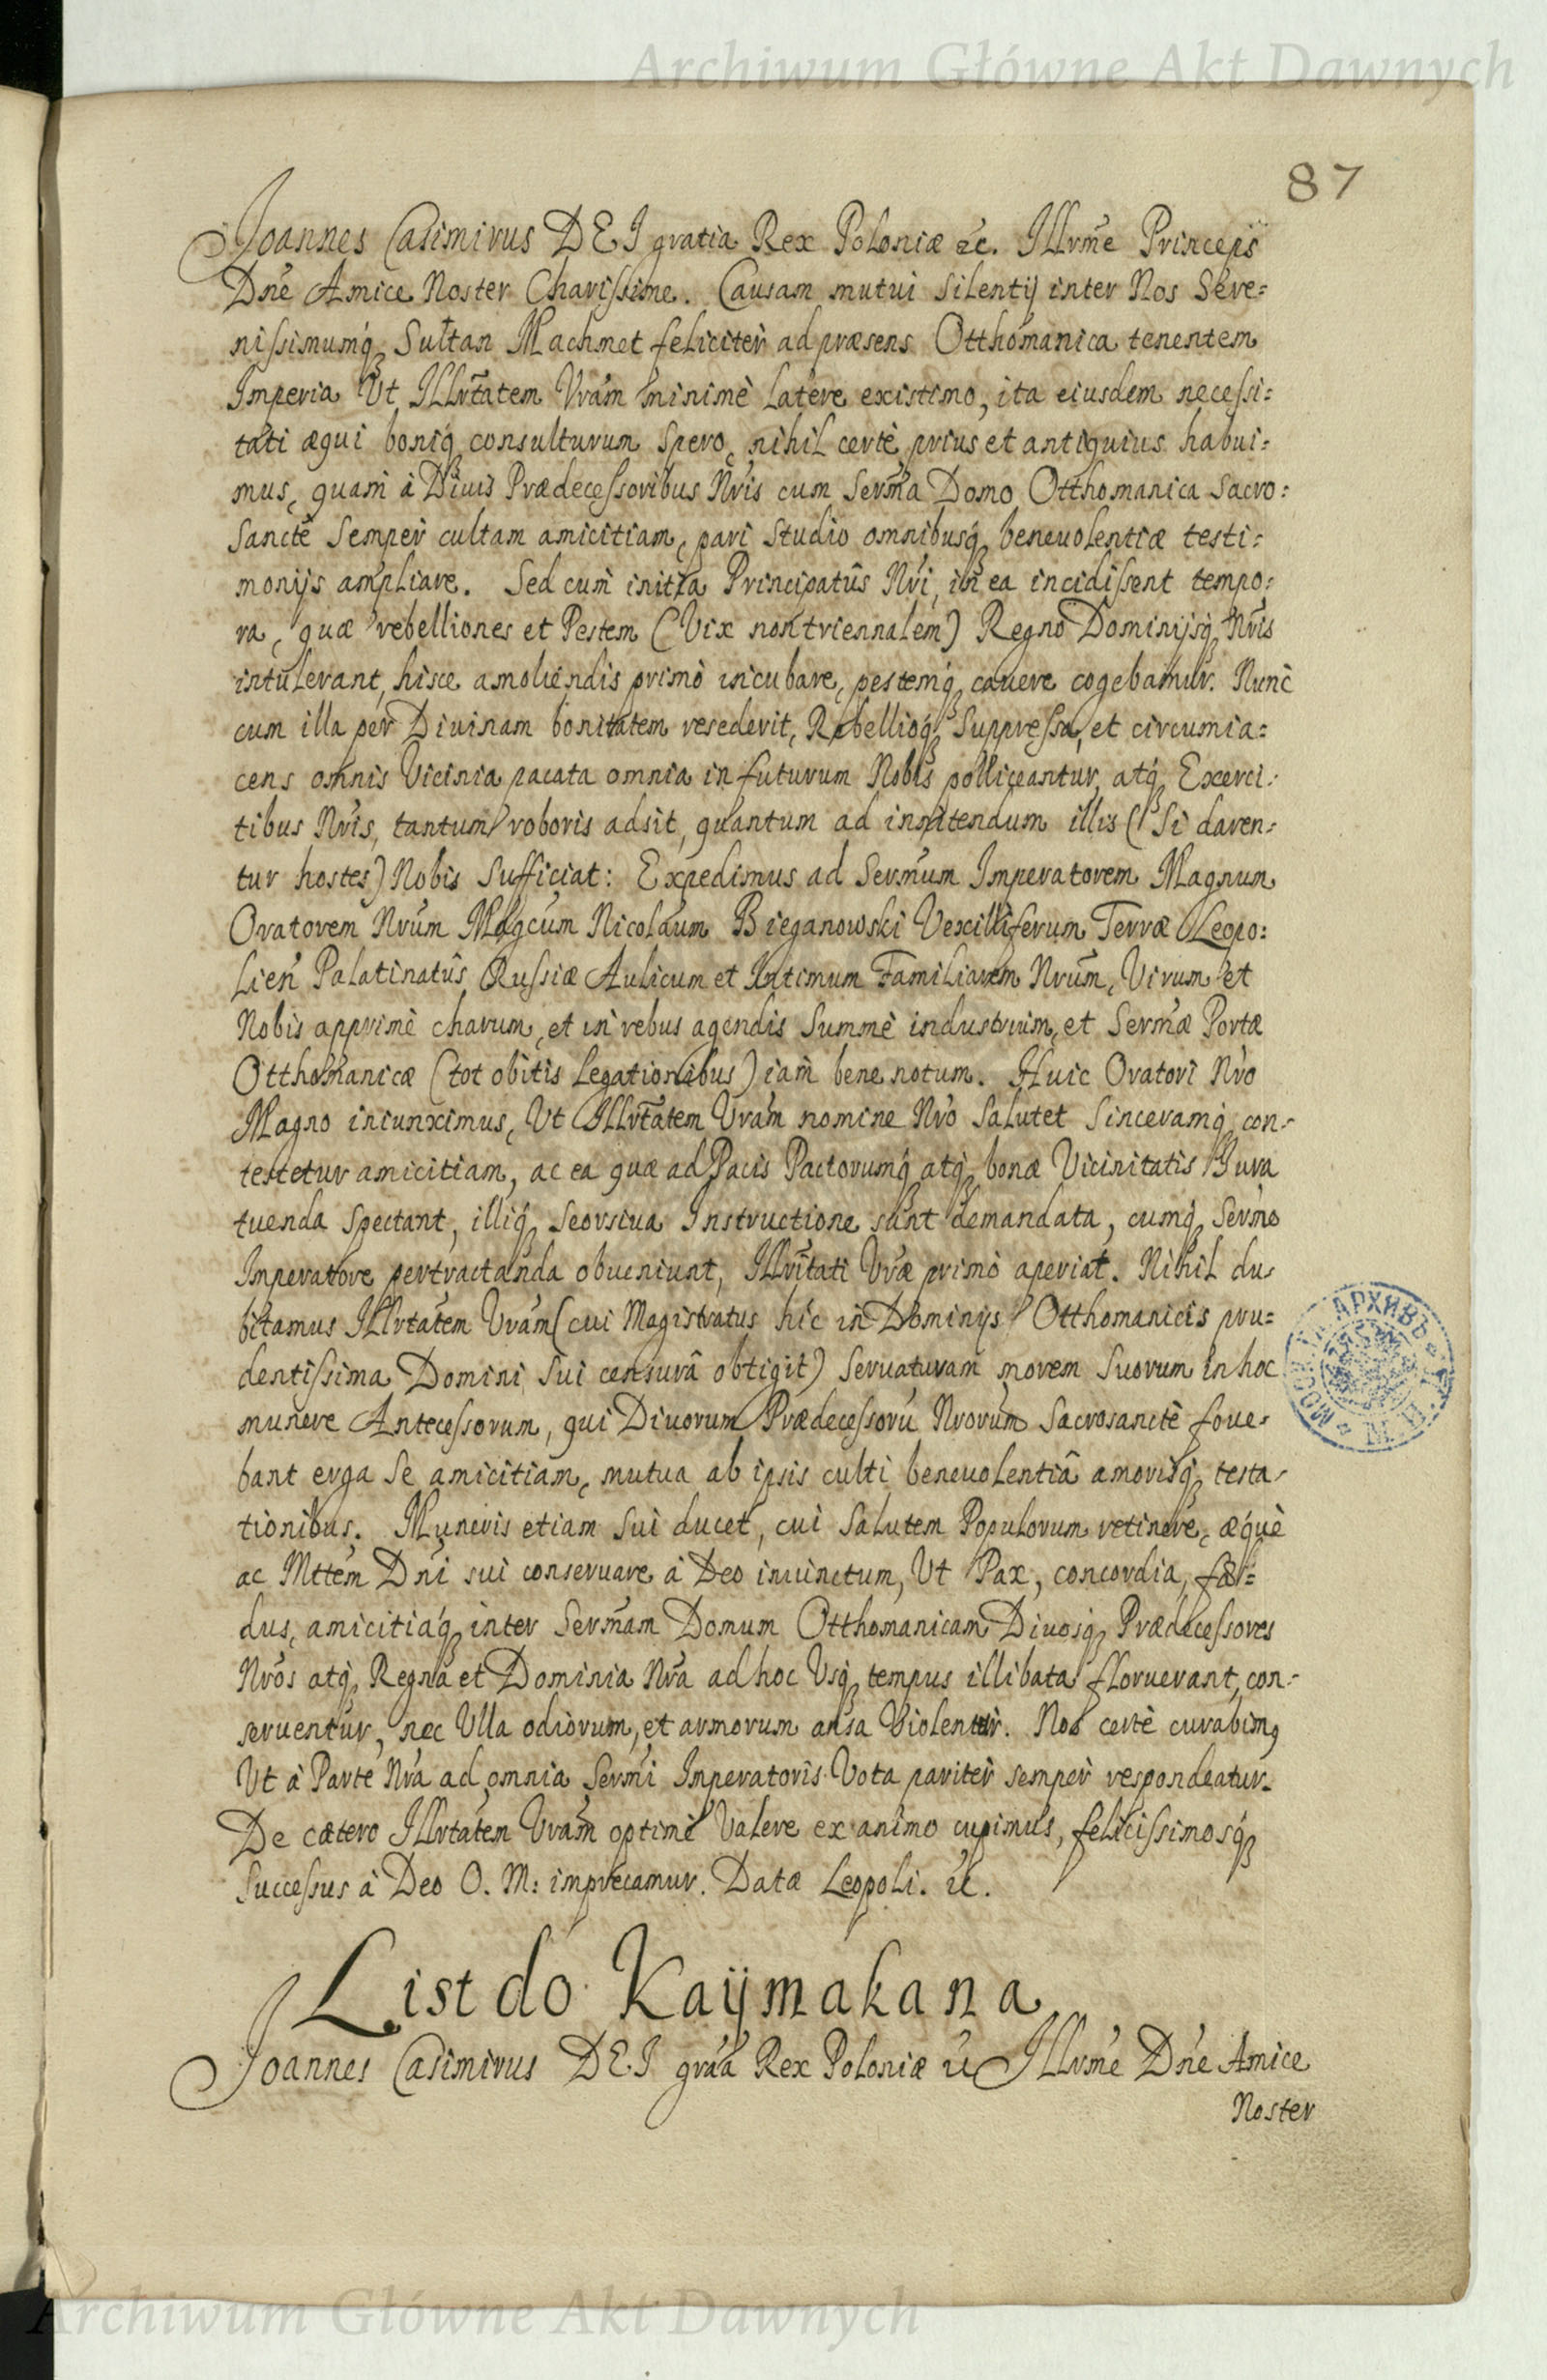 Archiwum Główne Akt Dawnych
87
Joannes Casimirus DEI gratia Rex Poloniæ &c. Illrme Princeps
Dne Amice Noster Charissime. Causam mutui silentij inter Nos Sere=
nissimumq Sultan Machmet feliciter ad præsens Otthomanica tenentem
Imperia Ut Illrtatem Vram minimè latere existimo, ita eiusdem necessi=
tati æqui boniq consulturum spero, nihil certè prius et antiquius habui=
mus, quam à Diuis Prædecessoribus Nris cum Serma Domo Otthomanica sacro=
sanctè semper cultam amicitiam, pari studio omnibusq beneuolentiæ testi=
monijs ampliare. Sed cum initia Principatûs Nri, in ea incidissent tempo=
ra, quæ rebelliones et Pestem (Vix non triennalem) Regno Dominijsq Nris
intulerant, hisce amoliendis primò incubare, pestemq cauere cogebamur. Nunc
cum illa per Diuinam bonitatem resederit, Rebellioq suppressa, et circumia=
cens omnis Vicinia pacata omnia in futurum Nobis polliceantur, atq Exerci=
tibus Nris, tantum roboris adsit, quantum ad innitendum illis (Si daren=
tur hostes) Nobis sufficiat: Expedimus ad Sermum Imperatorem Magnum
Oratorem Nrum Magcum Nicolaum Bieganowski Vexilliferum Terræ Leopo=
lien Palatinatûs Russiæ Aulicum et Intimum Familiarem Nrum, Virum et
Nobis apprimè charum, et in rebus agendis summè industrium, et Sermæ Portæ
Otthomanicæ (tot obitis legationibus) iam bene notum. Huic Oratori Nro
Magno iniunximus, Ut Illrtatem Vram nomine Nro salutet sinceramq con-
testetur amicitiam, ac ea quæ ad Pacis Pactorumq atq bonæ Vicinitatis Jura
tuenda spectant, illiq seorsiua Instructione sunt demandata, cumq Sermo
Imperatore pertractanda obueniunt, Illrtati Vræ primò aperiat. Nihil du-
bitamus Illrtatem Vram (cui Magistratus hic in Dominijs Otthomanicis pru=
dentissima Domini sui censurâ obtigit) seruaturam morem suorum in hoc
munere Antecessorum, qui Diuorum Prædecessorũ Nrorum sacrosanctè foue-
bant erga se amicitiam, mutua ab ipsis culti beneuolentiâ amorisq testa-
tionibus. Muneris etiam sui ducet, cui salutem Populorum retinere, æquè
ac Mttem Dni sui conseruare à Deo iniunctum, Ut Pax, concordia, fœ=
dus, amicitiaq inter Sermam Domum Otthomanicam Diuosq Prædecessores
Nros atq Regna et Dominia Nra ad hoc Usq tempus illibata floruerant, con-
seruentur, nec Ulla odiorum, et armorum ansa Violentur. Nos certè curabimq
Ut à Parte Nra ad omnia Sermi Imperatoris Vota pariter semper respondeatur.
De cætero Illrtatem Vram optimè Valere ex animo cupimus, felicissimosq
successus à Deo O. M: imprecamur. Datæ Leopoli. &c.
List do Kaijmakana
Joannes Casimirus DEI graa Rex Poloniæ &c Illrme Dne Amice
Noster
Archiwum Główne Akt Dawnych